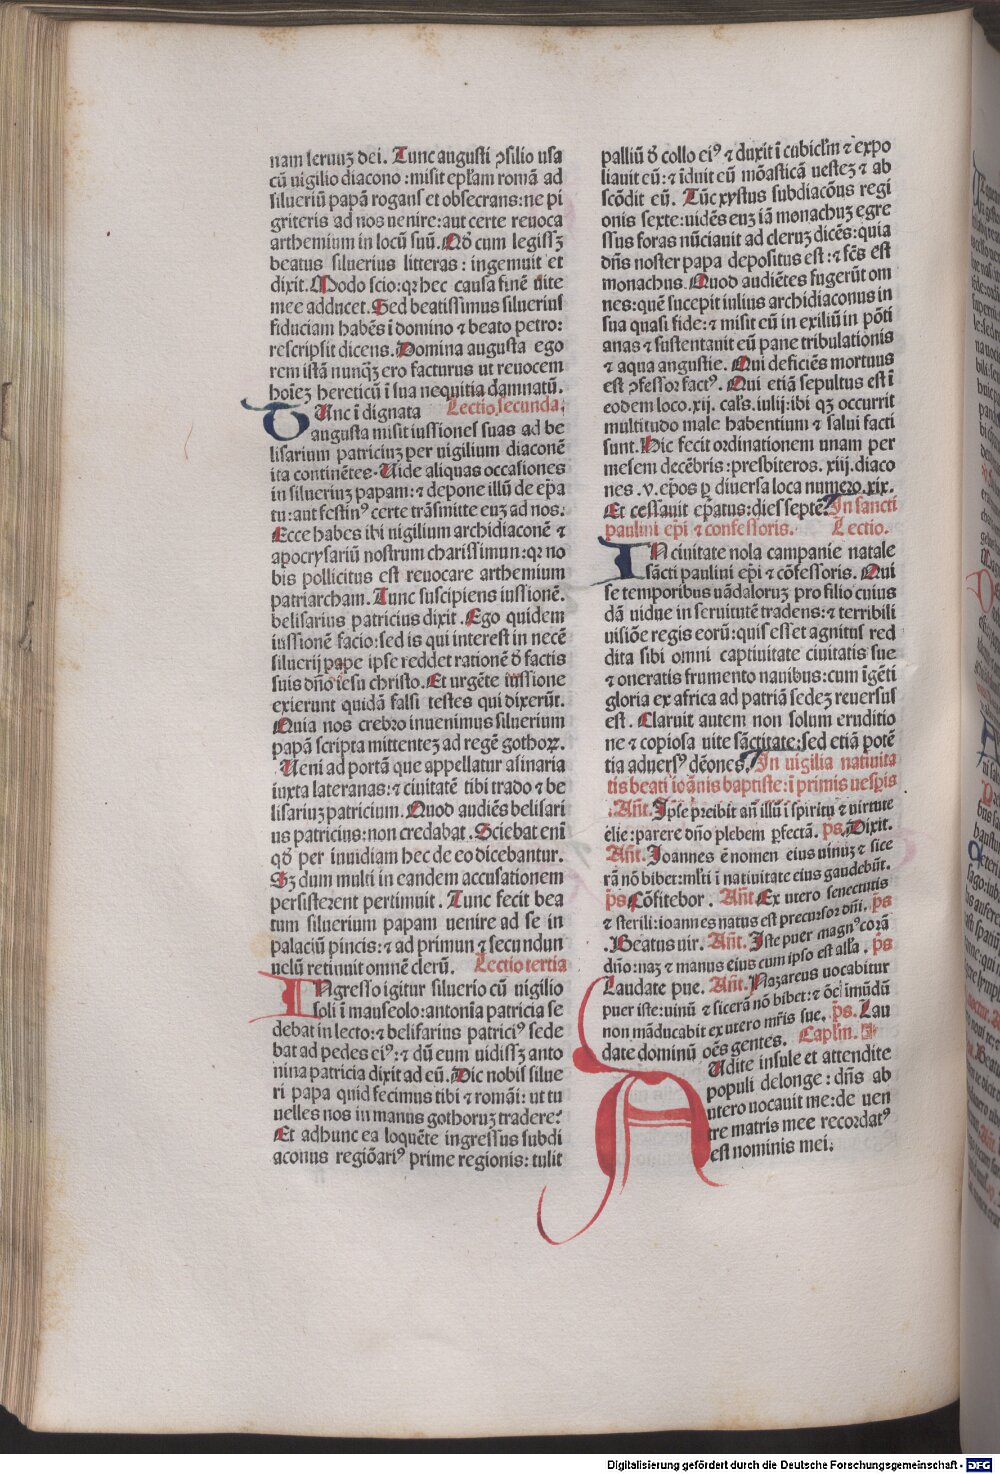 nam seruuꝫ dei. Tunc augusti ꝯsilio usa
cū uigilio diacono : misit epl̄am romā ad
silueriū papā rogans et obsecrans: ne pi
griteris ad nos uenire: aut certe reuoca
arthemium in locū suū. Qd̓ cum legissꝫ
beatus siluerius litteras : ingemuit et
dixit. Modo scio: qꝛ hec causa finē uite
mee adducet. Sed beatissimus siluerius
fiduciam habēs ī domino ⁊ beato petro:
rescripsit dicens. Domina augusta ego
rem istā nunqꝫ ero facturus ut reuocem
hoīeꝫ hereticū ī sua nequitia damnatū.
Tunc ī dignata Lectio secunda.
augusta misit iussiones suas ad be
lisarium patriciuꝫ per uigilium diaconē
ita continētes. Uide aliquas occasiones
in siluerius papam: ⁊ depone illū de ep̄a
tu: aut festinꝰ certe trāsmitte euꝫ ad nos:
Ecce habes ibi uigilium archidiaconē ⁊
apocrysariū nostrum charissimun: qꝛ no
bis pollicitus est reuocare arthemium
patriarcham. Tunc suscipiens iussionē.
belisarius patricius dixit. Ego quidem
iussionē facio: sed is qui interest in necē
siluerij pape ipse reddet rationē d̓ factis
suis dn̄o iesu christo. Et urgēte iussione
exierunt quidā falsi testes qui dixerūt.
Quia nos crebro inuenimus siluerium
papā scripta mittenteꝫ ad regē gothoꝝ.
Ueni ad portā que appellatur asinaria
iuxta lateranas: ⁊ ciuitatē tibi trado ⁊ be
lisariuꝫ patricium. Quod audiēs belisari
us patricius: non credabat. Sciebat enī
qd̓ per inuidiam hec de eo dicebantur.
Sꝫ dum multi in eandem accusationem
persisterent pertimuit. Tunc fecit bea
tum siluerium papam uenire ad se in
palaciū pincis: ⁊ ad primun ⁊ secundun
uelū retinuit omnē clerū. Lectio tertia
INgresso igitur siluerio cū uigilio
soli ī mauseolo: antonia patricia se
debat in lecto: ⁊ belisarius patriciꝰ sede
bat ad pedes eiꝰ: ⁊ dū eum uidissꝫ anto
nina patricia dixit ad eū. Dic nobis silue
ri papa quid fecimus tibi ⁊ romāi: ut tu
uelles nos in manus gothoruꝫ tradere:
Et adhunc ea loquēte ingressus subdi
aconus regiōariꝰ prime regionis: tulit
palliū d̓ collo eiꝰ ⁊ duxit ī cubicl̄m ⁊ expo
liauit eū: ⁊ īduit eū mōasticā uesteꝫ ⁊ ab
scōdit eū. Tūc xystus subdiacōus regi
onis sexte: uidēs euꝫ iā monachuꝫ egre
ssus foras nūciauit ad cleruꝫ dicēs: quia
dn̄s noster papa depositus est: ⁊ fcs̄ est
monachus. Quod audiētes fugerūt om
nes: quē sucepit iulius archidiaconus in
sua quasi fide: ⁊ misit eū in exiliū in pōti
anas ⁊ sustentauit eū pane tribulationis
⁊ aqua angustie. Qui deficiēs mortuus
est ꝯfessor factꝰ. Qui etiā sepultus est ī
eodem loco. xij. cal̄s. iulij: ibi qꝫ occurrit
multitudo male habentium ⁊ salui facti
sunt. Hic fecit ordinationem unam per
mesem decēbris: presbiteros. xiij. diaco
nes. v. ep̄os ꝑ diuersa loca numero. xix.
Et cessauit ep̄atus: dies septē. In sancti
paulini ep̄i ⁊ confessoris. Lectio.
IN ciuitate nola campanie natale
sācti paulini ep̄i ⁊ cōfessoris. Qui
se temporibus uādaloruꝫ pro filio cuius
dā uidue in seruitutē tradens: ⁊ terribili
uisiōe regis eorū: quis esset agnitus red
dita sibi omni captiuitate ciuitatis sue
⁊ oneratis frumento nauibus: cum īgēti
gloria ex africa ad patriā sedeꝫ reuersus
est. Claruit autem non solum eruditio
ne ⁊ copiosa uite sāctitate: sed etiā potē
tia aduersꝰ dēones. In uigilia natiuita
tis beati ioānis baptiste: ī primis uesp̄is
.An̄t. Ipse preibit an̄ illū ī spiritu ⁊ uirtute
ēlie: parere dn̄o plebem ꝑfectā. ps. Dixit.
An̄t. Joannes ē nomen eius uinuꝫ ⁊ sice
rā nō bibet: ml̄ti ī natiuitate eius gaudebūt.
ps Cōfitebor. An̄t Ex utero senectutis
⁊ sterili: ioannes natus est precursor dn̄i. ps
.Beatus uir. An̄t. Iste puer magnꝰ corā
dn̄o: naꝫ ⁊ manus eius cum ipso est all̄a. ps
Laudate pue. An̄t. Nazareus uocabitur
puer iste: uinū ⁊ sicerā nō bibet: ⁊ ōē imūdū
non māducabit ex utero mr̄is sue. ps. Lau
date dominū oēs gentes. Capl̄m.
Audite insule et attendite
populi delonge: dn̄s ab
utero uocauit me: de uen
tre matris mee recordatꝰ
est nominis mei.
Digitalisierung gefördert durch die Deutsche Forschungsgemeinschaft - DFG